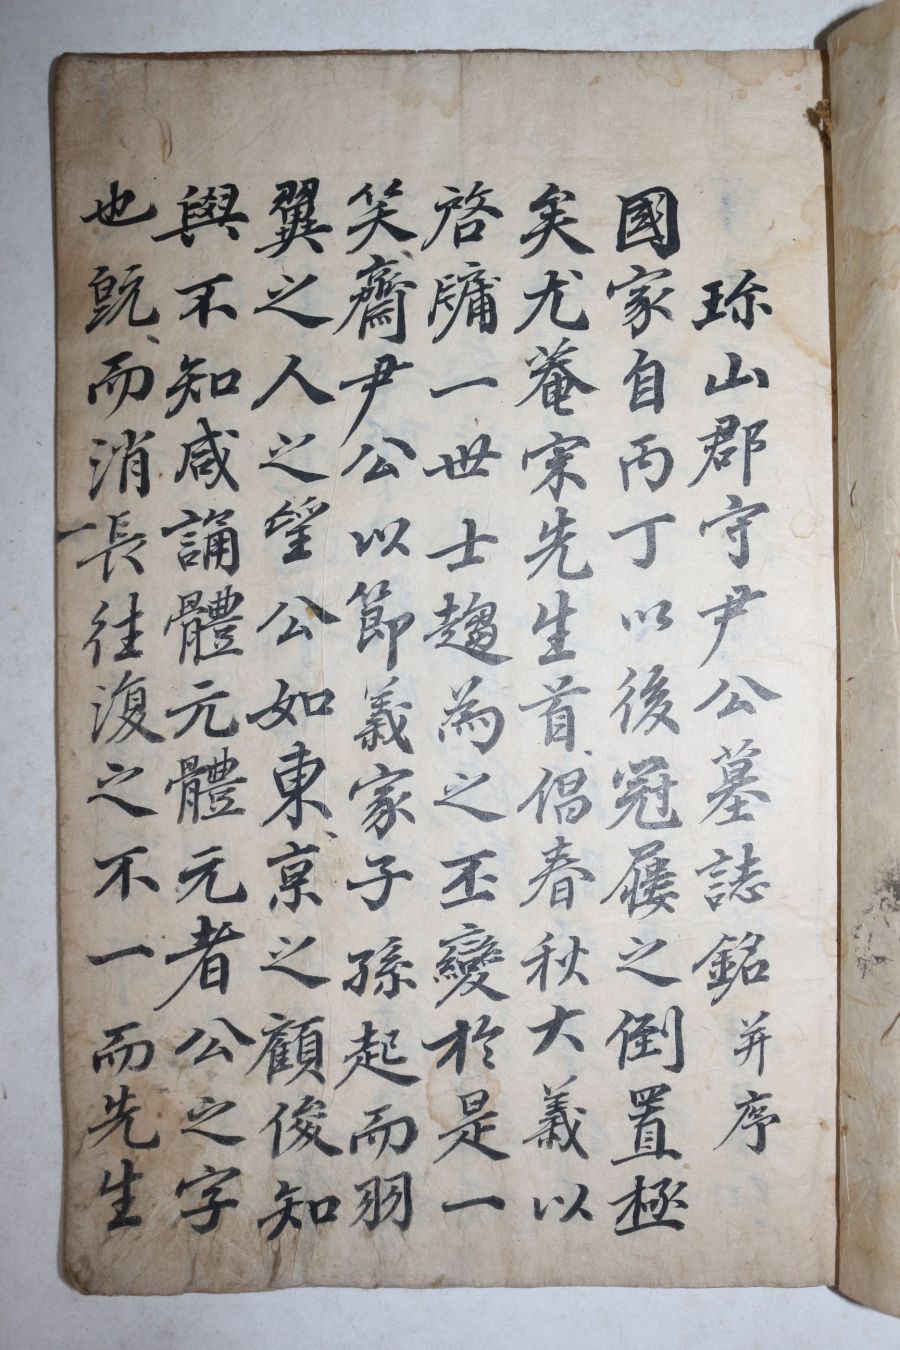 珎山郡守尹公墓誌銘 并序
國家自丙丁以後冠屨之倒置極
矣尤菴宋先生首倡春秋大義以
啓牖一世士趨為之丕變於是一
笑齋尹公以節義家子孫起而羽
翼之人之望公如東京之顧俊知
與不知咸誦體元體元者公之字
也旣而消長往復之不一而先生